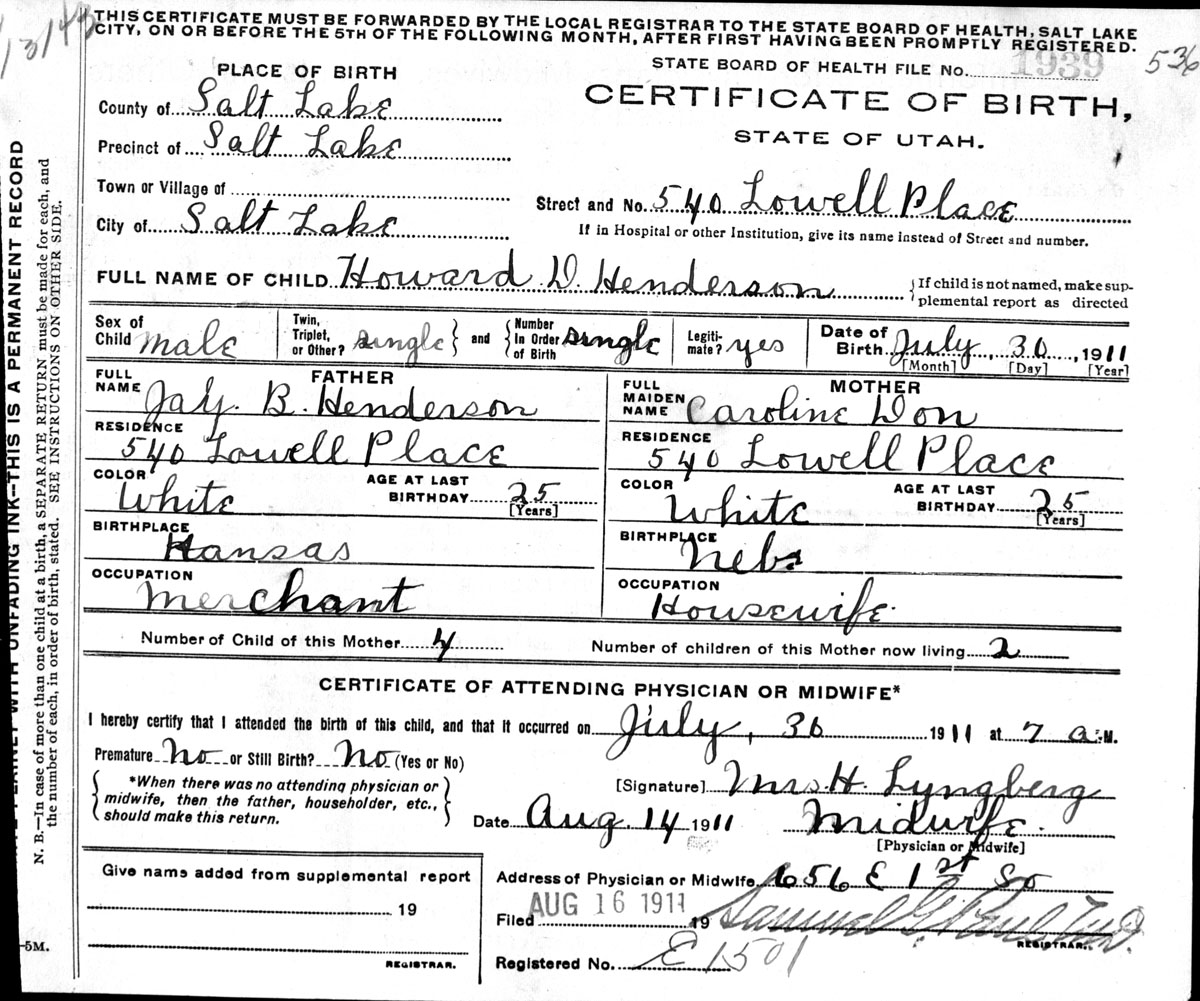 THIS CERTIFICATE MUST BE FORWARDED BY THE LOCAL REGISTRAR TO THE STATE BOARD OF HEALTH, SALT LAKE
CITY, ON OR BEFORE THE 5TH OF THE FOLLOWING MONTH, AFTER FIRST HAVING BEEN PROMPTLY REGISTERED.
STATE BOARD OF HEALTH FILE No. 1939
536
PLACE OF BIRTH
CERTIFICATE OF BIRTH,
STATE OF UTAH.
County of Salt Lake
Precinct of Salt Lake
Town or Village of
City of Salt Lake
Street and No. 540 Lowell Place
If in Hospital or other Institution, give its name instead of Street and number.
FULL NAME OF CHILD Howard D. Henderson
If child is not named, make sup-
plemental report as directed
Sex of Child male
Twin, Triplet, or Other? single and Number In Order of Birth single
Legiti-mate? yes
Date of Birth July, 30, 1911
[Month] [Day] [Year]
FATHER
FULL NAME Jay. B. Henderson
RESIDENCE
540 Lowell Place
COLOR White AGE AT LAST BIRTHDAY 25
[Years]
BIRTHPLACE
Kansas
OCCUPATION
Merchant
MOTHER
FULL MAIDEN NAME Caroline Don
RESIDENCE
540 Lowell Place
COLOR White AGE AT LAST BIRTHDAY 25
[Years]
BIRTHPLACE
Nebr
OCCUPATION
Housewife
Number of Child of this Mother 4
Number of children of this Mother now living 2
CERTIFICATE OF ATTENDING PHYSICIAN OR MIDWIFE*
I hereby certify that I attended the birth of this child, and that it occurred on July, 30 1911 at 7 a.M.
Premature No or Still Birth? No (Yes or No)
*When there was no attending physician or
midwife, then the father, householder, etc.,
should make this return.
[Signature] Mrs. H. Lyngberg
Date Aug. 14 1911 Midwife.
[Physician or Midwife]
Give name added from supplemental report
19
REGISTRAR.
Address of Physician or Midwife 656 E 1st So
Filed AUG 16 1911 19 Samuel G. Paul M.D.
REGISTRAR.
Registered No. E1501
N. B.—In case of more than one child at a birth, a SEPARATE RETURN must be made for each, and
the number of each, in order of birth, stated. SEE INSTRUCTIONS ON OTHER SIDE.
WITH UNFADING INK—THIS IS A PERMANENT RECORD
-5M.